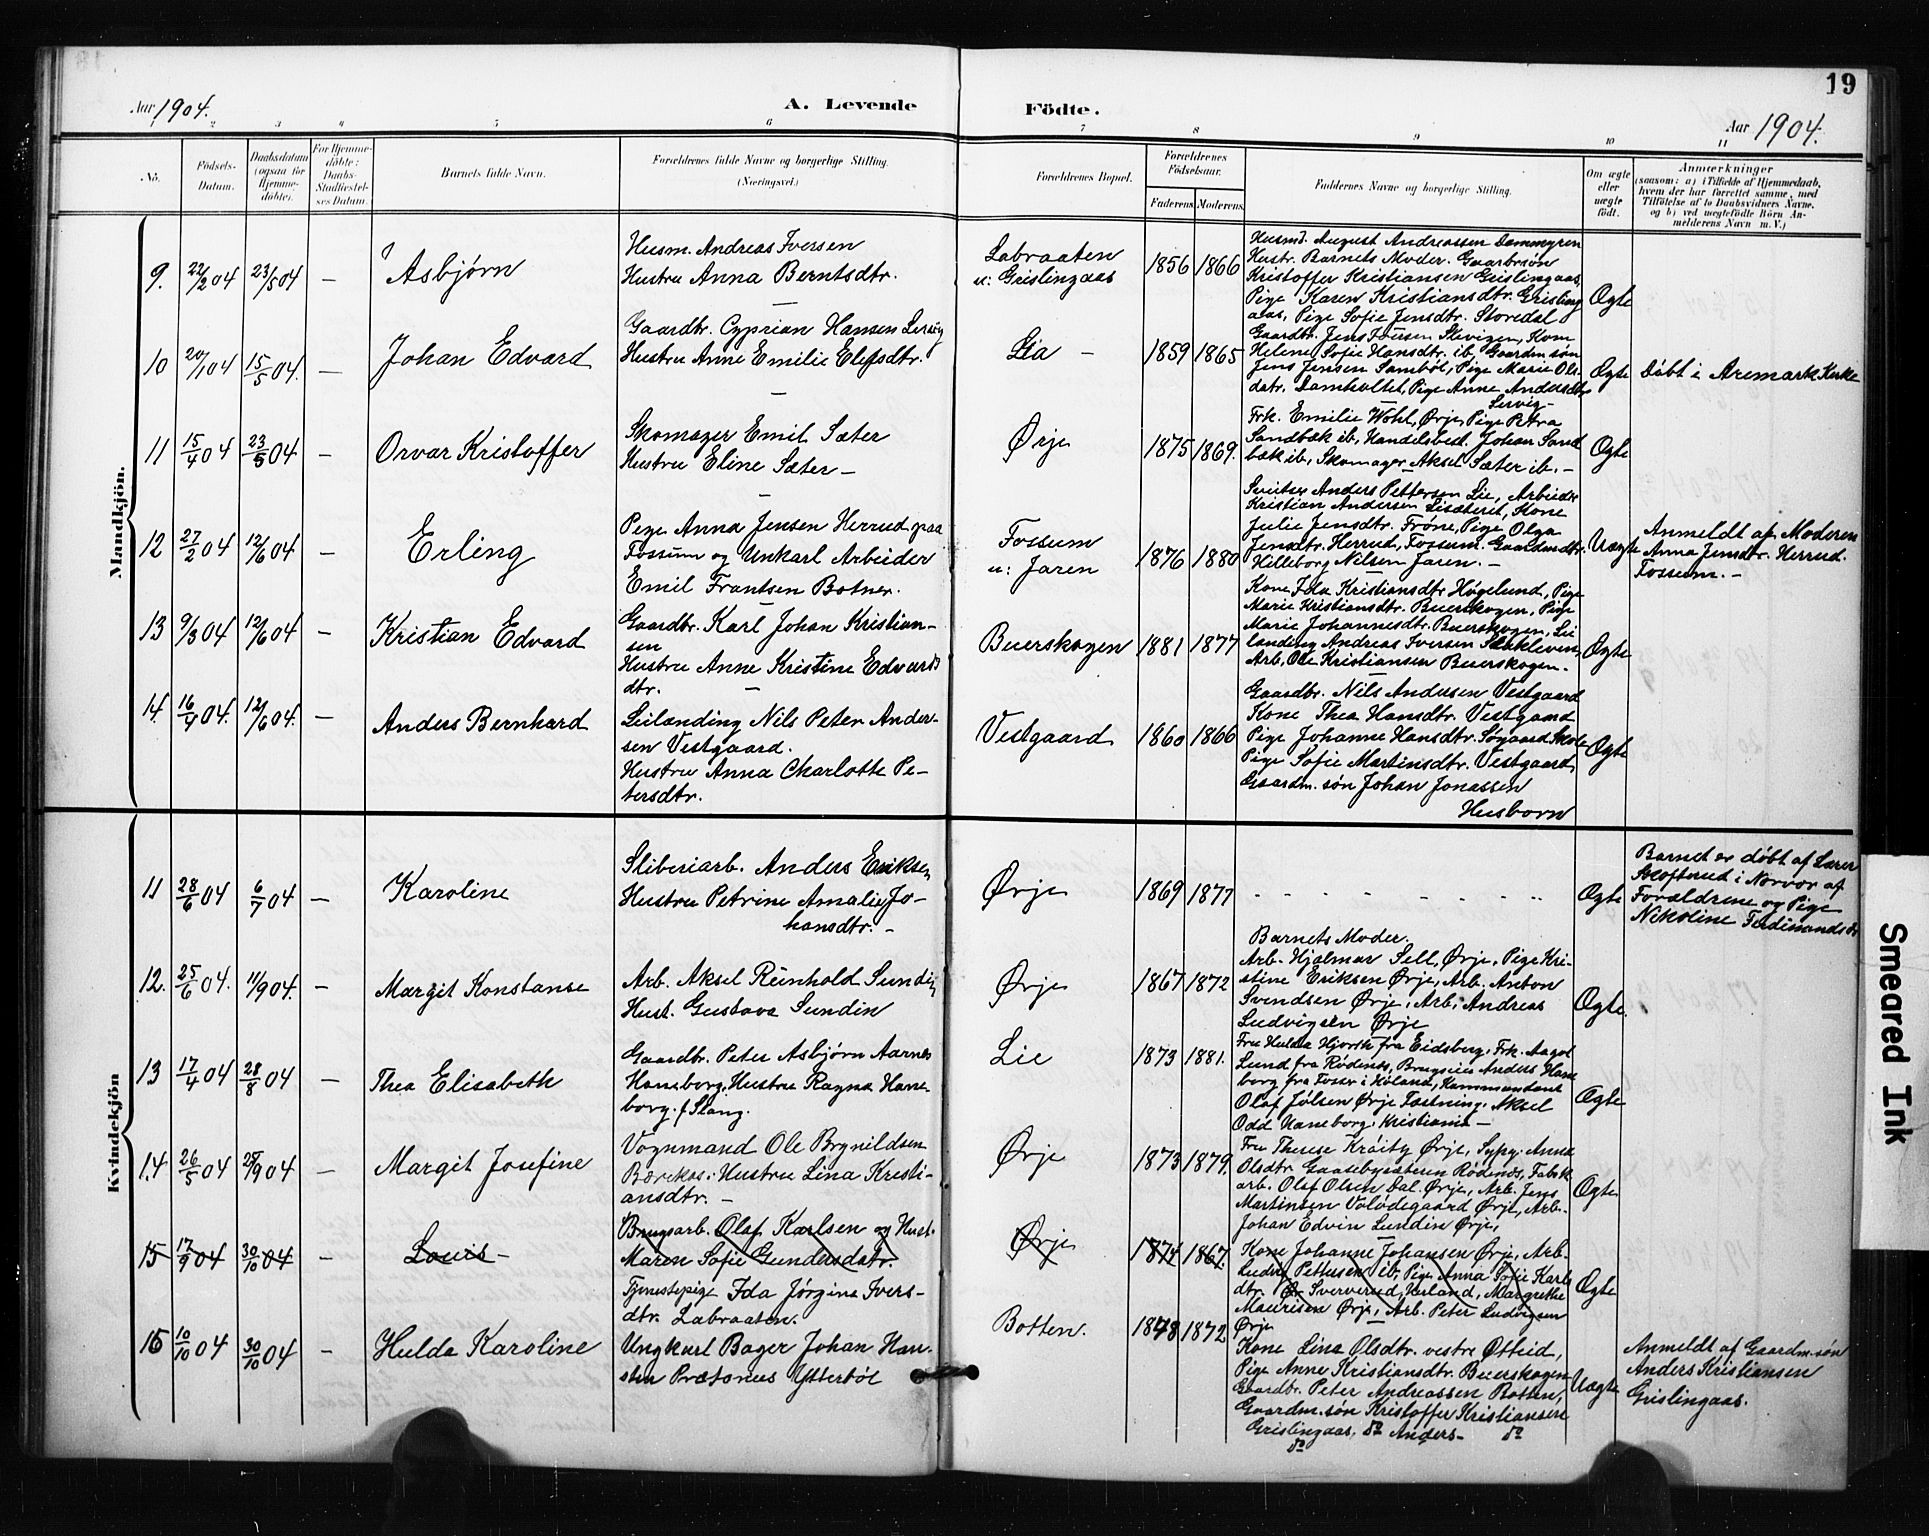 19
Aar 1904.
A. Levende Födte.
Aar 1904.
1 2 3 4 5 6 7 8 9 10 11
No.
Födsels-Datum.
Daabsdatum (ogsaa for Hjemme-döbte).
For Hjemme-döbte: Daabs-Stadfæstel-ses Datum.
Barnets fulde Navn.
Forældrenes fulde Navne og borgerlige Stilling.
(Næringsvei.)
Forældrenes Bopæl.
Forældrenes Födselsaar.
Faderens Moderens
Faddernes Navne og borgerlige Stilling.
Om ægte eller uægte födt.
Anmærkninger
(saasom: a) i Tilfælde af Hjemmedaab, hvem der har forrettet samme, med Tilföielse af to Daabsvidners Navne, og b) ved uægtefödte Börn Anmelderens Navn m. V.)
Mandkjön.
9. 22/2 04 23/5 04 — Asbjørn
Husm. Andreas Iversen
Hustru Anna Berntsdtr.
Labraaten
u: Grislingaas
1856 1866
Husmd. August Andreassen Dammyren
Hustr. Barnets Moder. Gaardbrsøn
Kristoffer Kristiansen Grislingaas,
Pige Karen Kristiansdtr. Grisling
aas, Pige Sofie Jensdtr. Storedal
Ægte
10 20/1 04 15/5 04. — Johan Edvard
Gaardbr. Cyprian Hansen Lervig
Hustru Anne Emilie Elefsdtr.
Lia —
1859 1865
Gaardbr. Jens Jensen Slevigen, Kone
Helene Sofie Hansdtr. ib, Gaardm.søn
Jens Jensen Sambøl, Pige Marie Ols
datr. Damholtet, Pige Anne Andersdtr
Lervig —
Ægte
Døbt i Aremark Kirke
11 15/4 04 23/5 04 — Orvar Kristoffer
Skomager Emil Sæter
Hustru Eline Sæter —
Ørje
1875 1869.
Frk. Emilie Wohl, Ørje, Pige Petra
Sandbæk ib, Handelsbest. Johan Sand
bæk ib, Skomager Aksel Sæter ib. —
Ægte
12 27/2 04 12/6 04 — Erling
Pige Anna Jensen Herrud paa
Fossum og Unkarl Arbeider
Emil Frantsen Botner.
Fossum
u: Jaren
1876 1880
Anders Pettersen Lie, Arbeider
Kristian Andersen Lisæteret, Kone
Julie Jensdtr. Frøne, Pige Olga
Jensdtr. Herrud, Fossum. Gaardmdtr.
Hilleborg Nilsen Jaren. —
Uægte
Anmeldt af Moderen
Anna Jensdtr. Herrud.
Fossum. —
13 9/3 04 12/6 04 — Kristian Edvard
Gaardbr. Karl Johan Kristian-
sen
Hustru Anne Kristine Edvards
dtr. —
Buerskogen
1881 1877
Kone Ida Kristiansdtr Høgelund, Pige
Marie Kristiansdtr. Buerskogen, Pige
Marie Johannesdtr. Buerskogen, Lei
lænding Andreas Iversen
Arb, Ole Kristiansen Buerskogen.
Ægte
14. 16/4 04. 12/6 04. — Anders Bernhard
Leilænding Nils Peter Ander-
sen Vestgaard.
Hustru Anna Charlotte Pe-
tersdtr.
Vestgaard
1860 1866
Gaardbr. Nils Andersen Vestgaard
Kone Thea Hansdtr. Vestgaard
Pige Johanne Hansdtr. Søgaard
Pige Sofie Martinsdtr. Vestgaard,
Gaardm. søn Johan Jonassen
Husborn
Ægte
Kvindekjön
11 28/6 04 6/7 04 — Karoline
Sliberiarb. Anders Eriksen
Hustru Petrine Amalie Jo-
hansdtr. —
Ørje
1869 1877
Ægte
Barnet er døbt af Lærer
i Nærvær af
Forældrene og Pige
Nikoline Ferdinandsdtr
12. 25/6 04. 11/9 04. — Margit Konstanse
Arb. Aksel Reinhold Sundin
Hust. Gustava Sundin
Ørje
1867 1872
Barnets Moder.
Arb. Hjalmar Sell, Ørje, Pige Kri-
stine Eriksen Ørje, Arb. Anton
Svendsen Ørje, Arb. Andreas
Ludvigsen Ørje
Ægte.
13 17/4 04 28/8 04 — Thea Elisabeth
Gaardbr. Peter Asbjørn Aarnes
Haneborg. Hustru Ragna Hane
borg. f Stang.
Lie
1873 1881.
Fru Hulda Hjorth fra Eidsberg, Frk. Aagot
Lund fra Rødenes, Anders Hane
borg fra Fosser i Høland, Kommandant
Olaf Jølsen Ørje Fæstning. Aksel
Odd Haneborg. Kristiania —
Ægte
14. 26/5 04 25/9 04 — Margit Josefine
Vognmand Ole Brynildsen
Hustru Lina Kristi-
ansdtr. —
Ørje
1873 1879.
Fru Therese Ørje, Sypg. Anna
Olsdtr. Rødenes, Fabrk
arb. Olaf Olsen Dal. Ørje, Arb. Jens
Martinsen Ørje, Arb.
Johan Edvin Lundin Ørje,
Ægte
15 17/9 04 30/10 04 — Louis —
Brugsarb. Olaf Karlsen og Hust.
Maren Sofie Gundersdatr.
Ørje
1874 1867.
Kone Johanne Johansen Ørje, Arb.
Ludvig Pettersen ib, Pige Anna Sofie Karls
dtr. Margrethe
Mauritsen Ørje, Arb. Peter Ludvigsen
Ørje
Ægte
16 10/10 04 30/10 04 — Hulda Karoline
Tjenestepige Ida Jørgine Ivers-
dtr. Labraaten.
Ungkarl Bager Johan Han-
sen Prætonus Ytterbøl
Botten.
1878 1872
Kone Lina Olsdtr. vestre Øtteid,
Pige Anne Kristiansdtr. Buerskogen
Gaardbr. Peter Andreassen Botten,
Gaardm. søn Kristoffer Kristiansen
Grislingaas. do Anders — do
do
Uægte
Anmeldt af Gaardm. søn
Anders Kristiansen
Grislingaas.
Smeared Ink